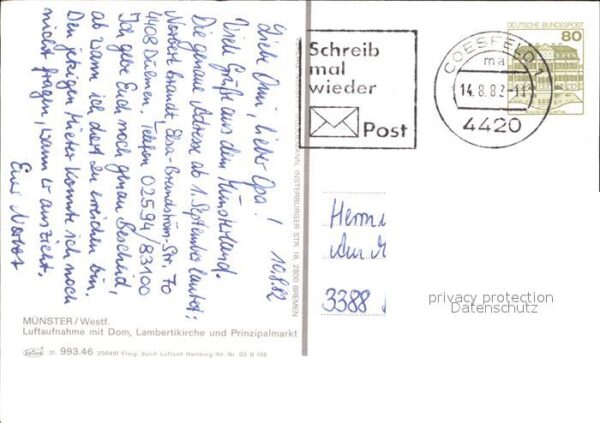 10.8.82
Liebe Omi, lieber Opa!
Viele Grüße aus dem Münsterland.
Die genaue Adresse ab 1. September lautet:
Norbert Brandt, Elsa-Brandström-Str. 70
4408 Dülmen, Telefon 02594/83100
Ich gebe Euch noch genau Bescheid,
ab wann ich dort zu erreichen bin.
Den jetzigen Mieter konnte ich noch
nicht fragen, wann er auszieht.
Euer Norbert
MÜNSTER/Westf.
Luftaufnahme mit Dom, Lambertikirche und Prinzipalmarkt
31 993.46 256491 Freig. durch Luftamt Hamburg
INSTERBURGER STR. 18, 2800 BREMEN
Schreib
mal
wieder
Post
COESFELD 1
ma
14.8.82-11
4420
DEUTSCHE BUNDESPOST
80
Herm
An
3388
privacy protection
Datenschutz